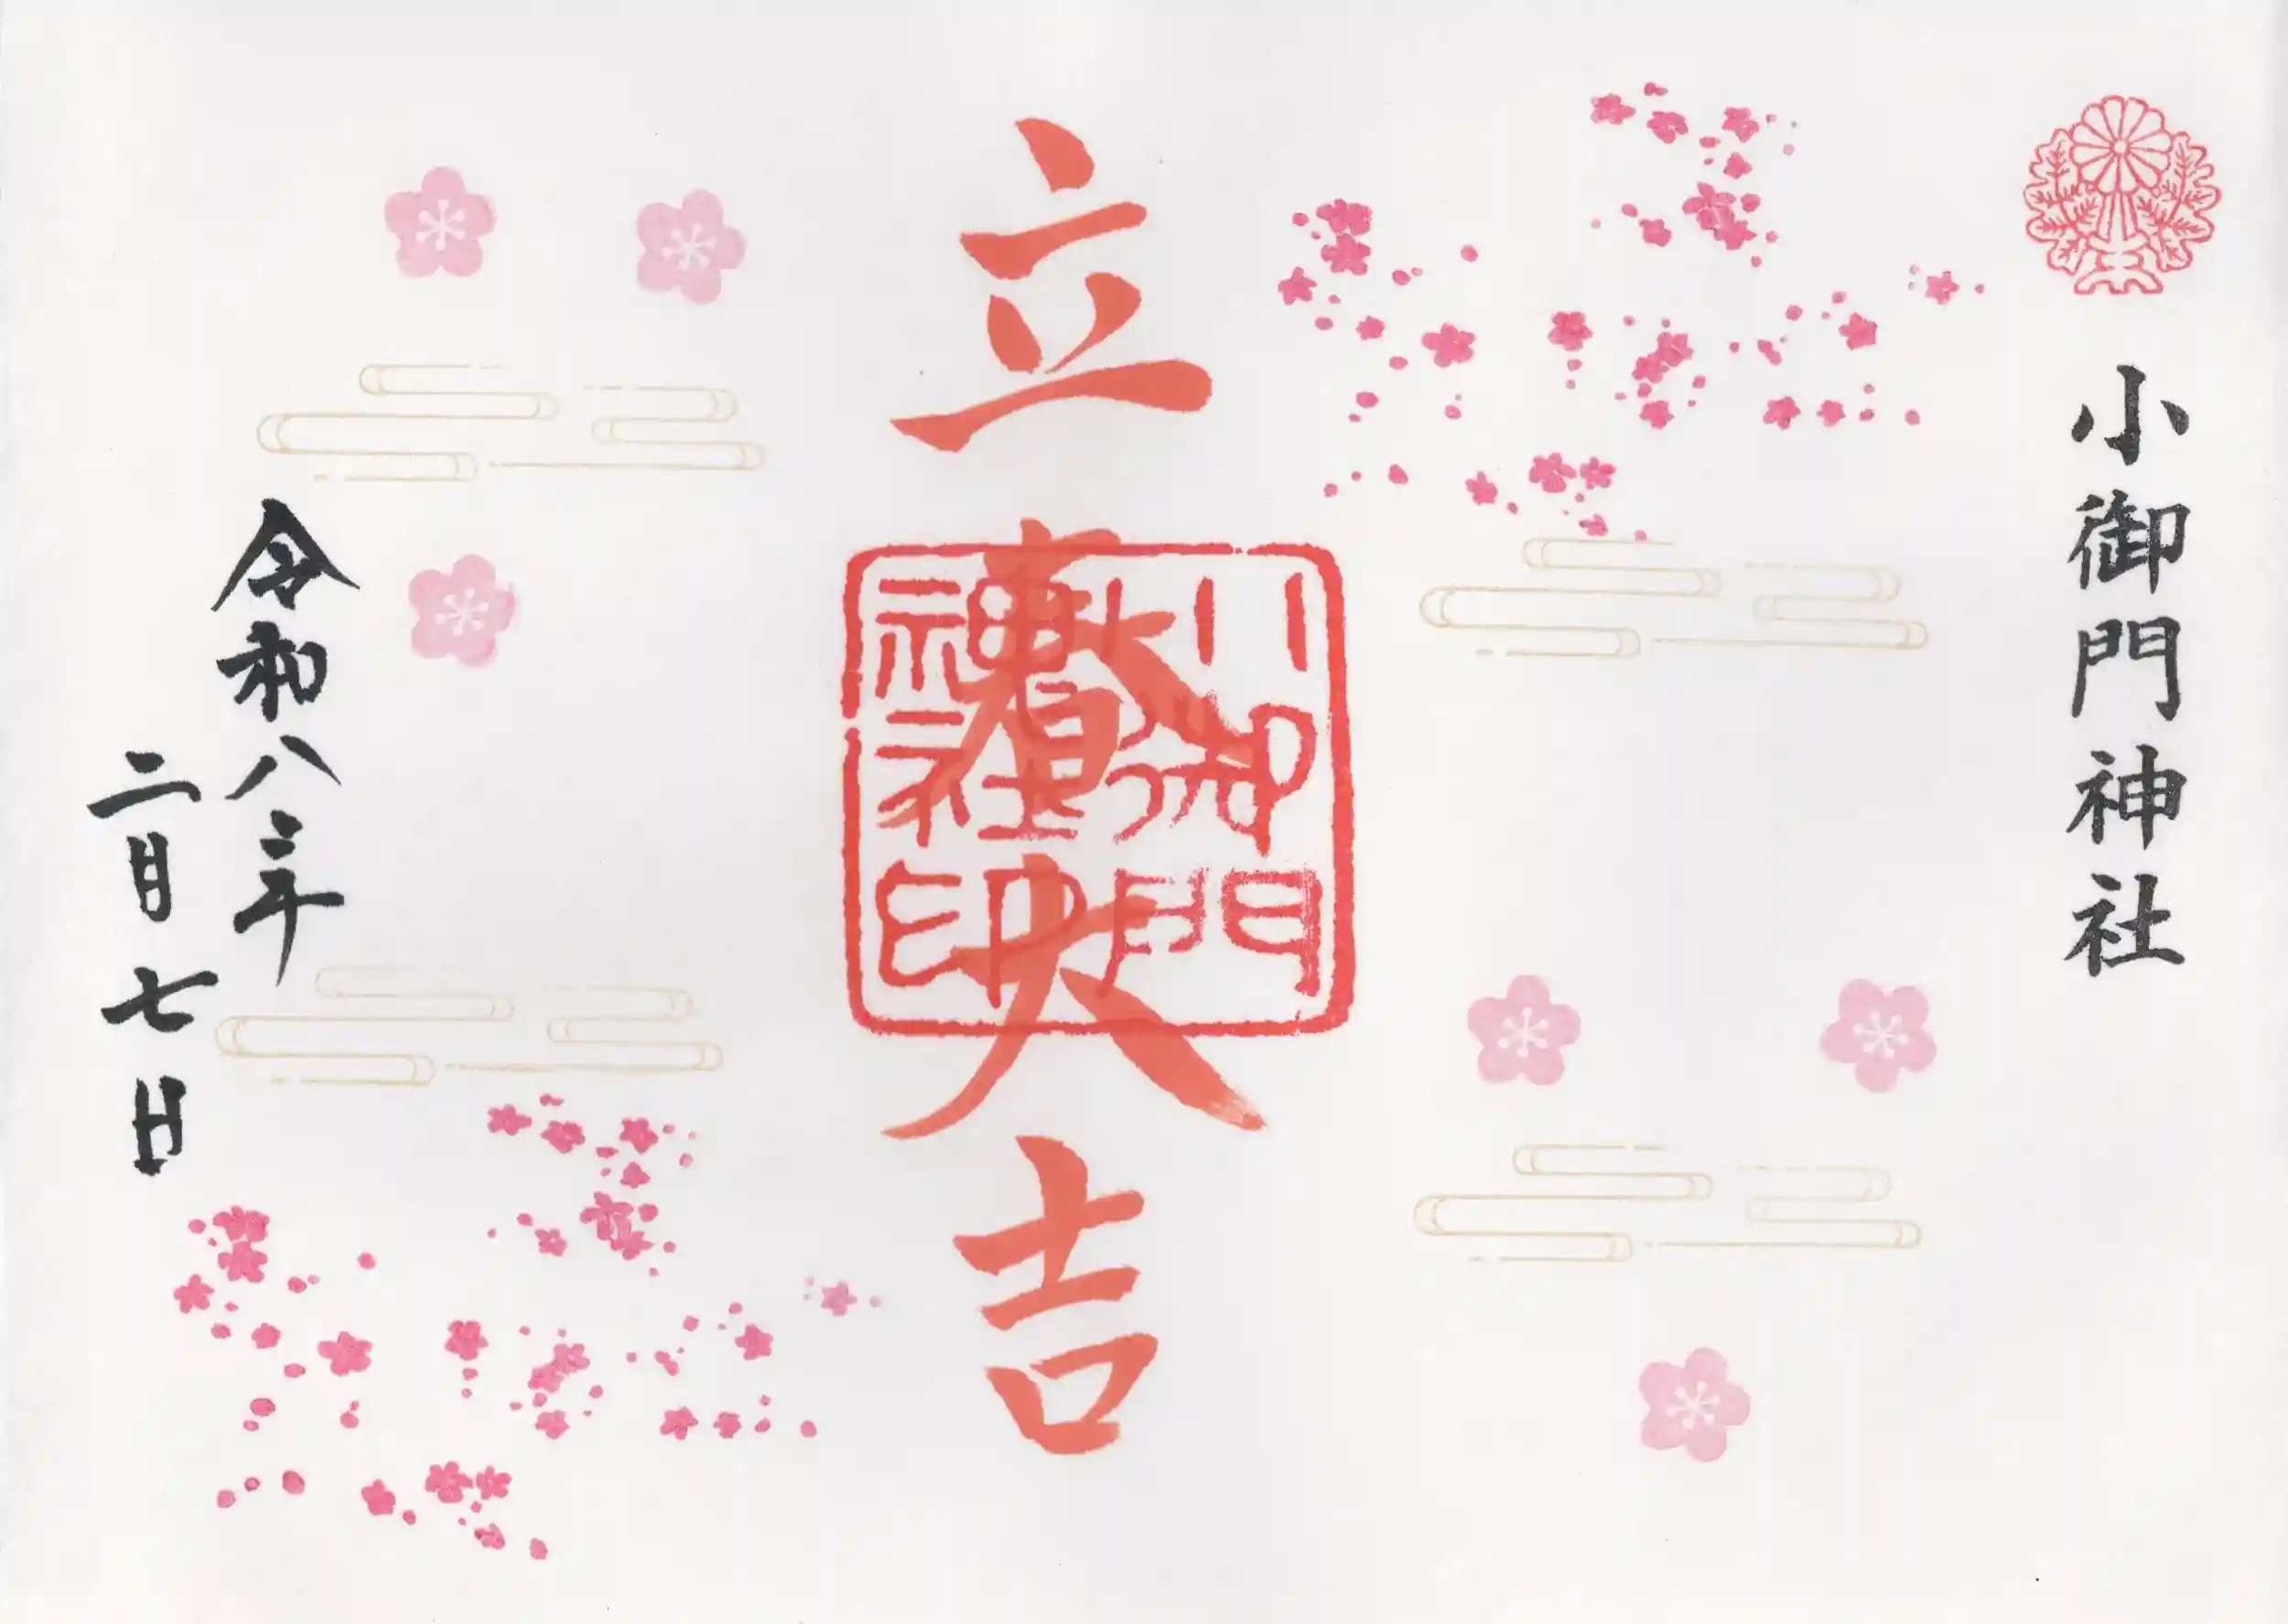 小御門神社
立春大吉
小御門
神社印
令和八年
二月七日